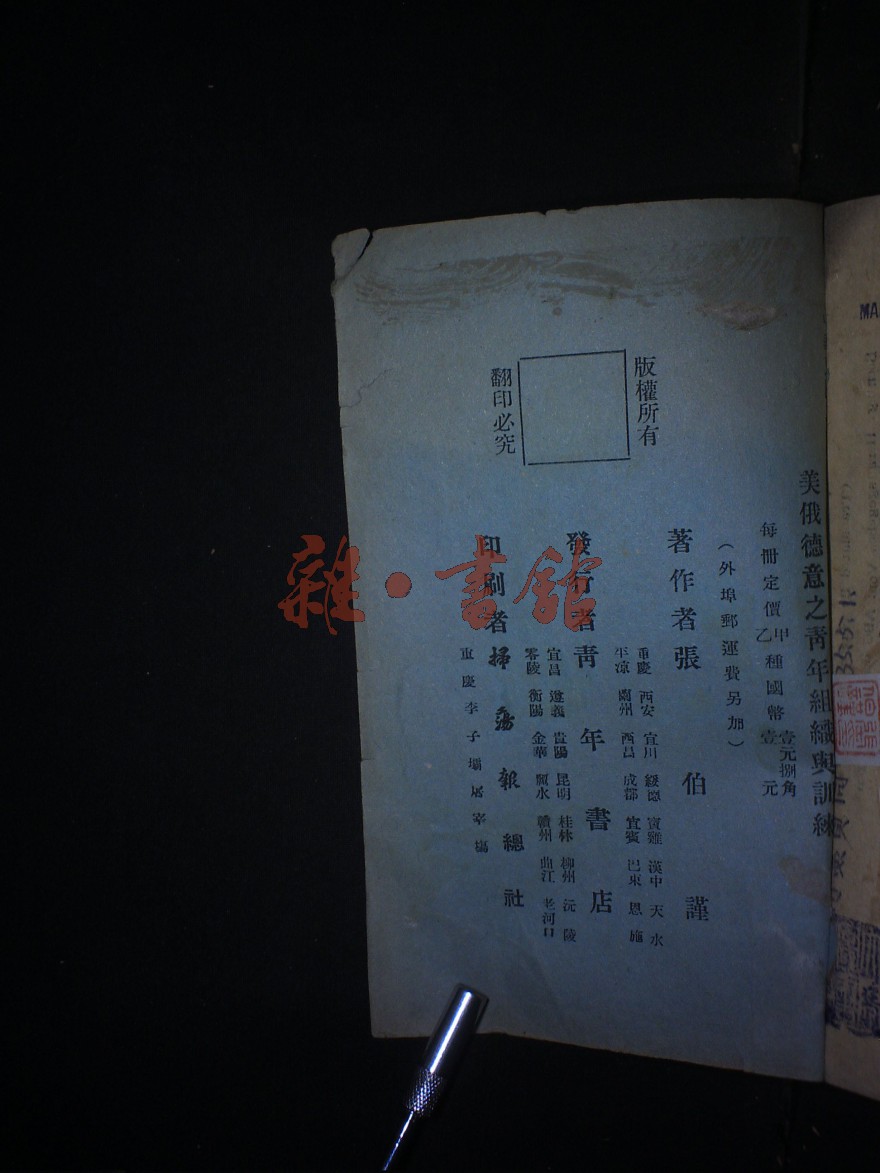 美俄德意之靑年組織與訓練
每冊定價甲種國幣壹元捌角
乙種國幣壹元
（外埠郵運費另加）
著作者張伯謹
發行者靑年書店
重慶 西安 宜川 綏德 寶雞 漢中 天水
平凉 蘭州 西昌 成都 宜賓 巴東 恩施
宜昌 遵義 貴陽 昆明 桂林 柳州 沅陵
零陵 衡陽 金華 麗水 贛州 曲江 老河口
印刷者掃蕩報總社
重慶李子壩屠宰場
版權所有
翻印必究
雜·書館
MA